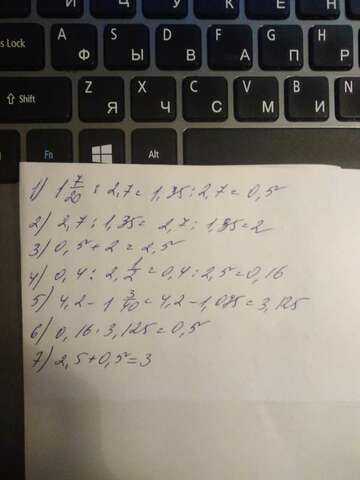 s Lock A Ф S Ы D В F А G П H Р
⇧ Shift Z Я X Ч C С V М B И
Ctrl Fn Alt
1) 1 7/20 : 2,7 = 1,35 : 2,7 = 0,5
2) 2,7 : 1,35 = 2,7 : 1,35 = 2
3) 0,5 + 2 = 2,5
4) 0,4 : 2 1/2 = 0,4 : 2,5 = 0,16
5) 4,2 - 1 3/40 = 4,2 - 1,075 = 3,125
6) 0,16 · 3,125 = 0,5
7) 2,5 + 0,5 = 3